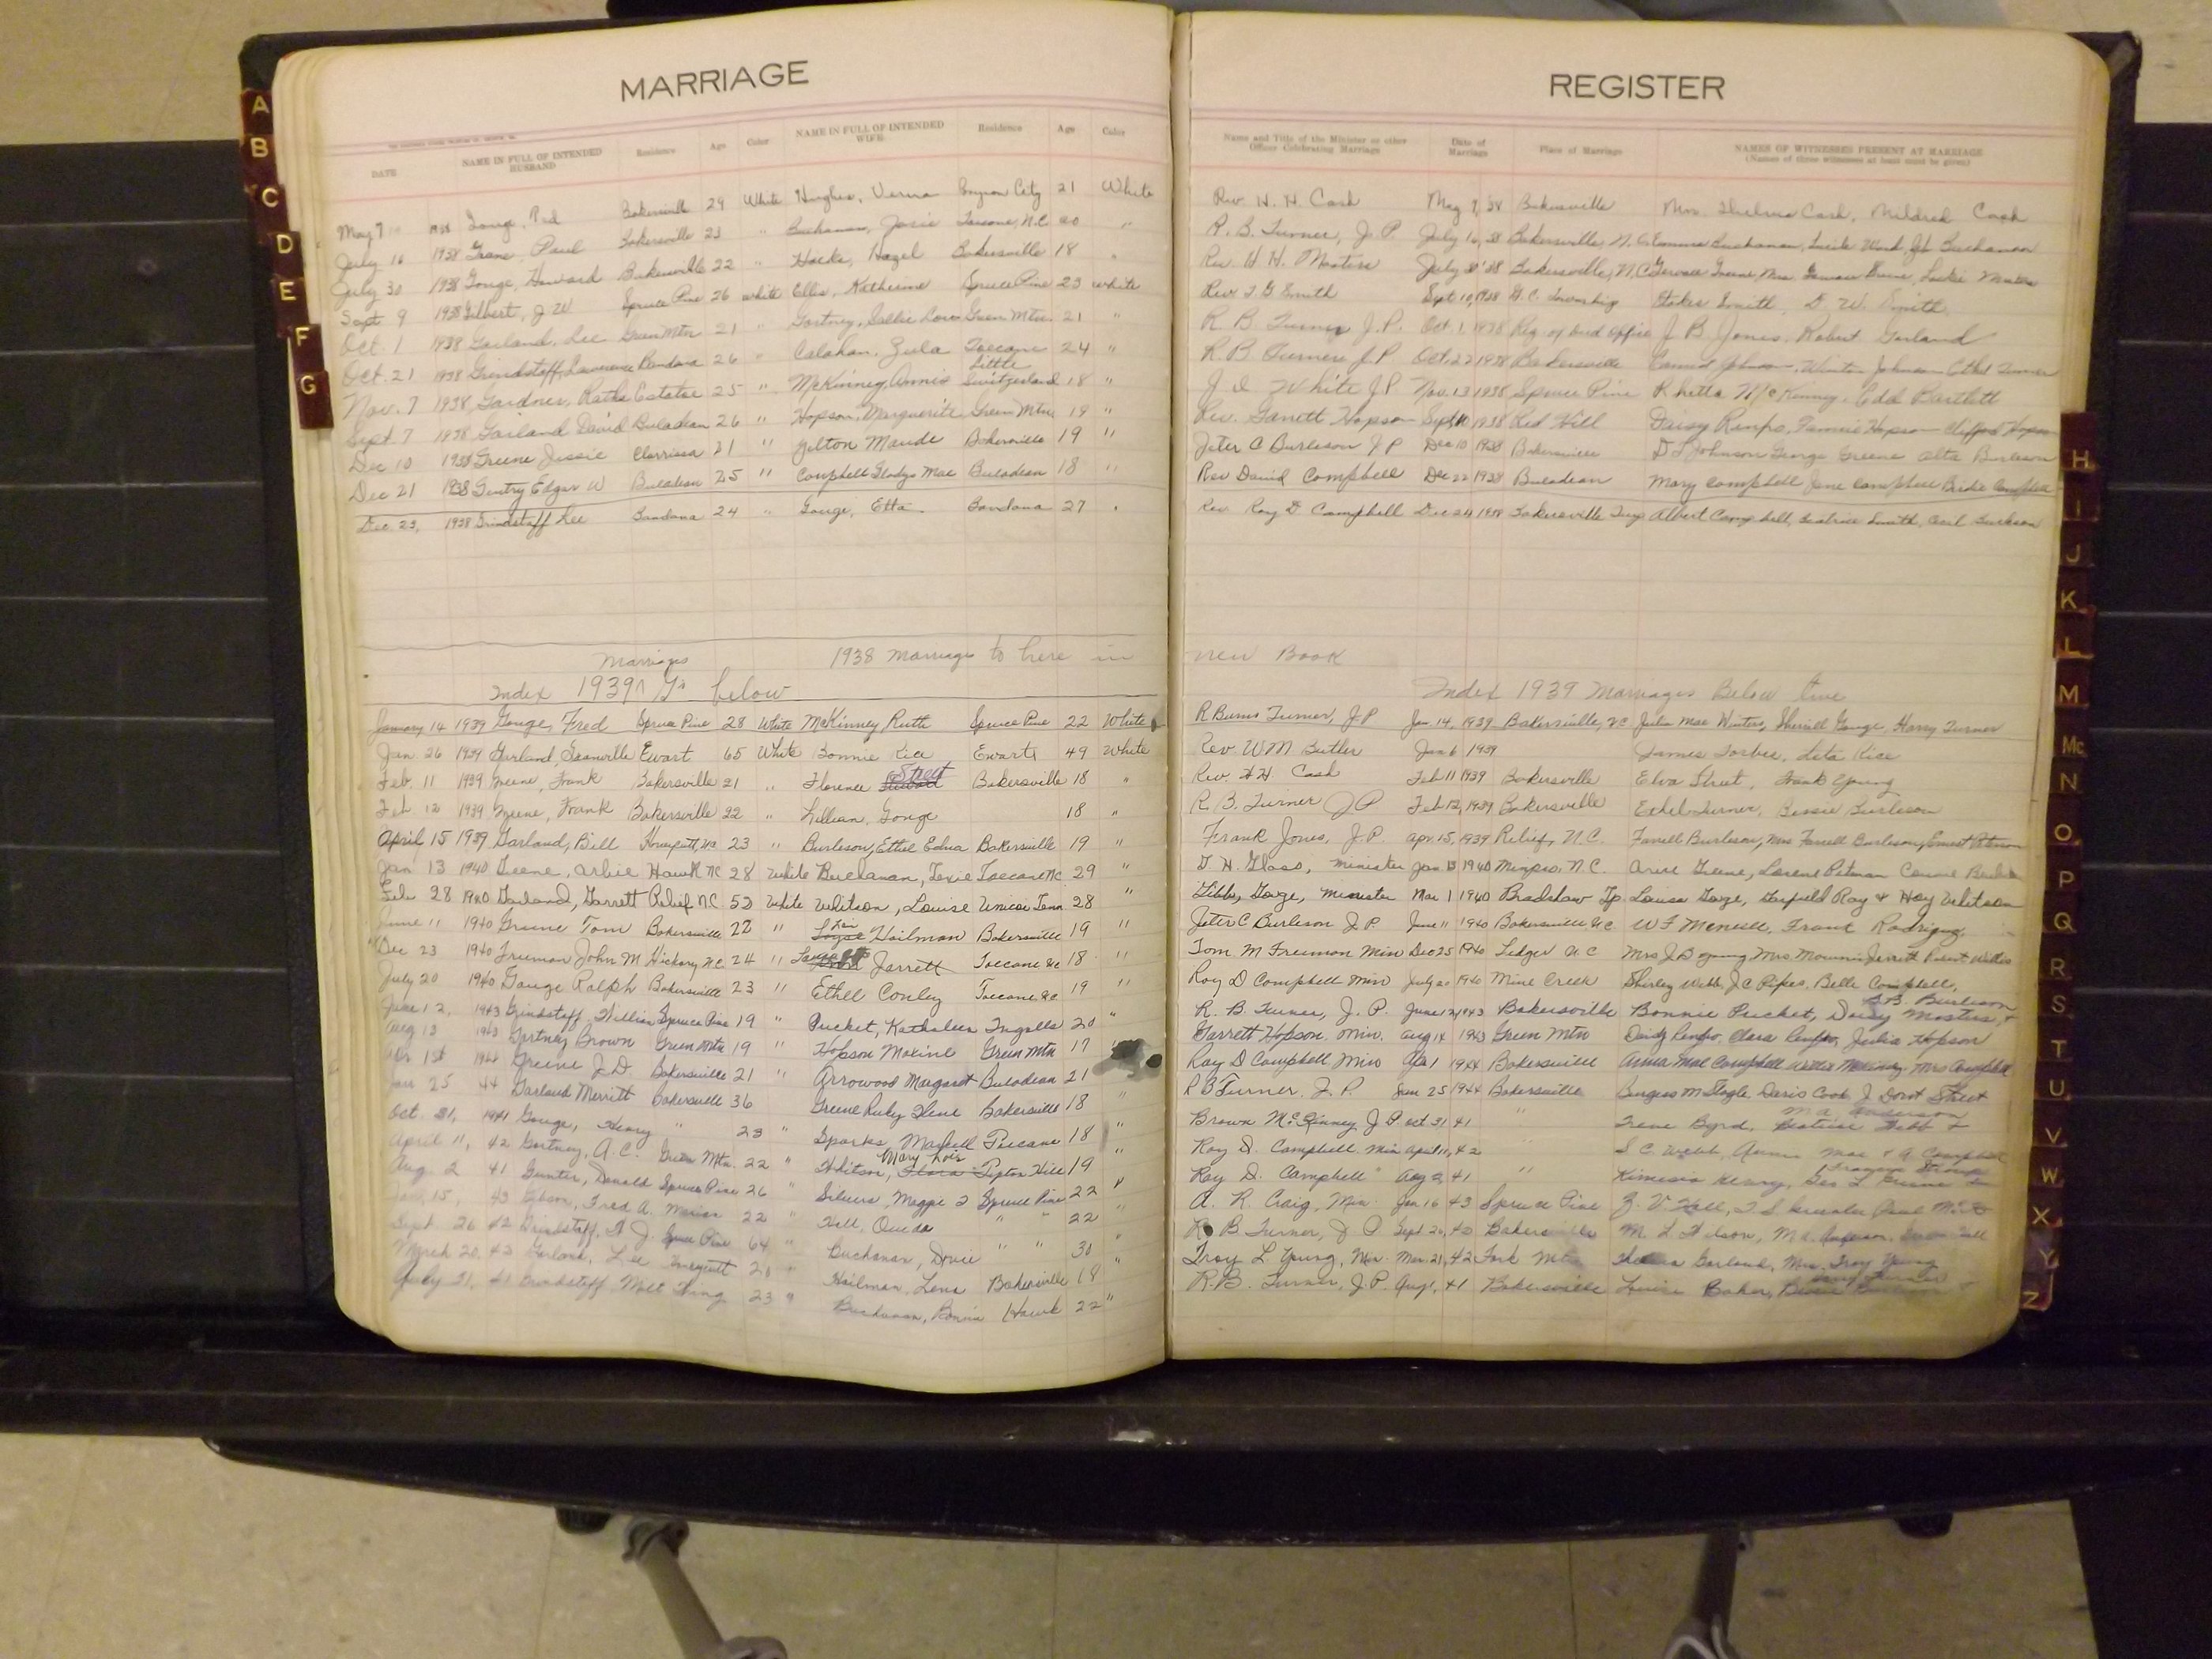 MARRIAGE
DATE NAME IN FULL OF INTENDED HUSBAND Residence Age Color NAME IN FULL OF INTENDED WIFE Residence Age Color
May 7 Gouge, Bakersville 29 White Hughes, Verna City 21 White
July 16 1938 Paul Bakersville 23 " Buchanan, Josie Toecane, N.C. 20 "
July 30 1938 Gouge, Howard Bakersville 22 " Hazel Bakersville 18 "
Sept 9 1938 Gilbert, J W Spruce Pine 26 white Ellis, Katherine Spruce Pine 23 white
Oct. 1 1938 Garland, Lee Green Mtn 21 " Gortney, Sallie Green Mtn. 21 "
Oct. 21 1938 Grindstaff, Lawrence Bandana 26 " Calahan, Zula Toecane 24 "
Nov. 7 1938 Gardner, Estatoe 25 " McKinney, Annis Little Switzerland 18 "
Sept 7 1938 Garland David Buladean 26 " Hopson, Marguerite Green Mtn 19 "
Dec 10 1938 Greene Jessie Clarrissa 21 " Yelton Maude Bakersville 19 "
Dec 21 1938 Gentry Edgar W Buladean 25 " Campbell Gladys Mae Buladean 18 "
Dec 23, 1938 Grindstaff Lee Bandana 24 " Gouge, Etta Bandana 27 "
Marriages 1938 Marriages to here in
Index 1939 G's below
January 14 1939 Gouge, Fred Spruce Pine 28 White McKinney Ruth Spruce Pine 22 White
Jan. 26 1939 Garland, Ewart 65 White Bonnie Rice Ewart 49 White
Feb. 11 1939 Greene, Frank Bakersville 21 " Florence Street Bakersville 18 "
Feb 12 1939 Greene, Frank Bakersville 22 " Lillian, Gouge 18 "
April 15 1939 Garland, Bill 23 " Burleson, Ethel Edna Bakersville 19 "
Jan 13 1940 Greene, Arbie Hawk NC 28 White Buchanan, Texie Toecane NC 29 "
Feb. 28 1940 Garland, Garrett Relief N.C. 52 White Whitson, Louise Unicoi Tenn 28 "
June 11 1940 Greene Tom Bakersville 22 " Hoilman Bakersville 19 "
Dec 23 1940 Freeman John M Hickory N.C. 24 " Jarrett Toecane NC 18 "
July 20 1940 Gouge Ralph Bakersville 23 " Ethel Conley Toecane NC 19 "
June 12, 1943 Grindstaff, William Spruce Pine 19 " Pucket, Kathaleen Ingalls 20 "
Aug 13 1943 Gortney Brown Green Mtn 19 " Hopson Maxine Green Mtn 17 "
Apr 1st 1944 Greene J.D. Bakersville 21 " Arrowood Margaret Buladean 21
Jan 25 44 Garland Merritt Bakersville 36 Greene Ruby Ilene Bakersville 18 "
Oct. 31, 1941 Gouge, Henry " 23 " Sparks, Toecane 18 "
April 11, 42 Gortney, A.C. Green Mtn. 22 " Whitson, Mary Lois Tipton Hill 19 "
Aug. 2 41 Gunter, Donald Spruce Pine 26 " Silvers, Maggie Spruce Pine 22 "
Jan. 15, 43 Gibson, Fred A. Marion 22 " Hall, Oueda " " 22 "
Sept. 26 42 Grindstaff, J. Spruce Pine 64 " Buchanan, Dovie " " 30 "
March 20, 43 Garland, Lee 21 " Hoilman, Lena Bakersville 18 "
July 31, 41 Grindstaff 23 " Buchanan, Bonnie Hawk 22 "
REGISTER
Name and Title of the Minister or other Officer Celebrating Marriage Date of Marriage Place of Marriage NAMES OF WITNESSES PRESENT AT MARRIAGE (Names of three witnesses at least must be given)
Rev. H. H. Cash May 7, 38 Bakersville Mrs. Thelma Cash, Mildred Cash
R. B. Turner, J. P. July 16, 38 Bakersville, N.C. Emma Buchanan, Buchanan
Rev. H. H. Masters July 38 Bakersville, N.C. Masters
Rev. T G Smith Sept 10, 1938 G. C. Township Stokes Smith, D. W. Smith
R B Turner J.P. Oct. 1, 1938 Reg. of deed office J. B. Jones, Robert Garland
R. B. Turner J.P. Oct. 22 1938 Bakersville Johnson, Johnson Ethel Turner
White J.P. Nov. 13 1938 Spruce Pine Rhetta McKinney, Edd Bartlett
Rev. Garrett Hopson Sept 10 1938 Red Hill Daisy Renfro, Fannie Hopson Clifford Hopson
Jeter C Burleson J P Dec 10 1938 Bakersville D J Johnson George Greene Alta Burleson
Rev David Campbell Dec 22 1938 Buladean Mary Campbell Jane Campbell Birdie Campbell
Rev Roy D Campbell Dec 24 1938 Bakersville Albert Campbell, Beatrice Smith, Cecil Burleson
new Book
Index 1939 Marriages Below line
R Burns Turner, J P Jan. 14, 1939 Bakersville, N.C. Julia Mae Winters, Sherrill Gouge, Harry Turner
Rev. W M Butler Jan 6 1939 James Forbes, Rice
Rev. H H. Cash Feb 11 1939 Bakersville Elva Street, Frank Young
R. B. Turner J P Feb 12, 1939 Bakersville Ethel Turner, Bessie Burleson
Frank Jones, J.P. Apr. 15, 1939 Relief, N.C. Farrell Burleson, Mrs Farrell Burleson, Ernest
G. H. Glass, minister Jan 13 1940 Minpro, N.C. Greene, Lorene Pitman
Gouge, Minister Mar 1 1940 Bradshaw Tp Louise Gouge, Garfield Ray & Hoy Whitson
Jeter C Burleson J. P. June 11 1940 Bakersville N.C. W F Meneill, Frank Rodrigug
Tom M Freeman Min Dec 25 1940 Ledger N C Mrs J D Young Mrs
Roy D Campbell Min July 20 1940 Mine Creek Shirley Webb, J C Pipes, Belle Campbell,
R. B. Turner, J. P. June 12, 1943 Bakersville Bonnie Pucket, Daisy Masters & B.B. Burleson
Garrett Hopson, Min. Aug 14 1943 Green Mtn Daisy Renfro, Clara Renfro, Julia Hopson
Roy D Campbell Min Apr 1 1944 Bakersville Anna Mae Campbell Mrs Campbell
R B Turner, J. P. Jan 25 1944 Bakersville Burgess M Slagle, Doris Cook, J Dont Street
Brown McKinney J.P. Oct. 31 41 " Irene Byrd, &
Roy D. Campbell, Min April 11, 42 S C Webb, Campbell
Roy D. Campbell " Aug 2 41 "
A. R. Craig, Min Jan 16 43 Spruce Pine Z. V. Hall,
R. B Turner, J P Sept 26, Bakersville M. L. Wilson,
Troy L Young, Min Mar. 21, 42 Fork Mtn Garland, Mrs. Troy Young
R.B. Turner, J.P. Aug 1, 41 Bakersville Louise Baker,
A
B
C
D
E
F
G
H
I
J
K
L
M
Mc
N
O
P
Q
R
S
T
U
V
W
X
Y
Z